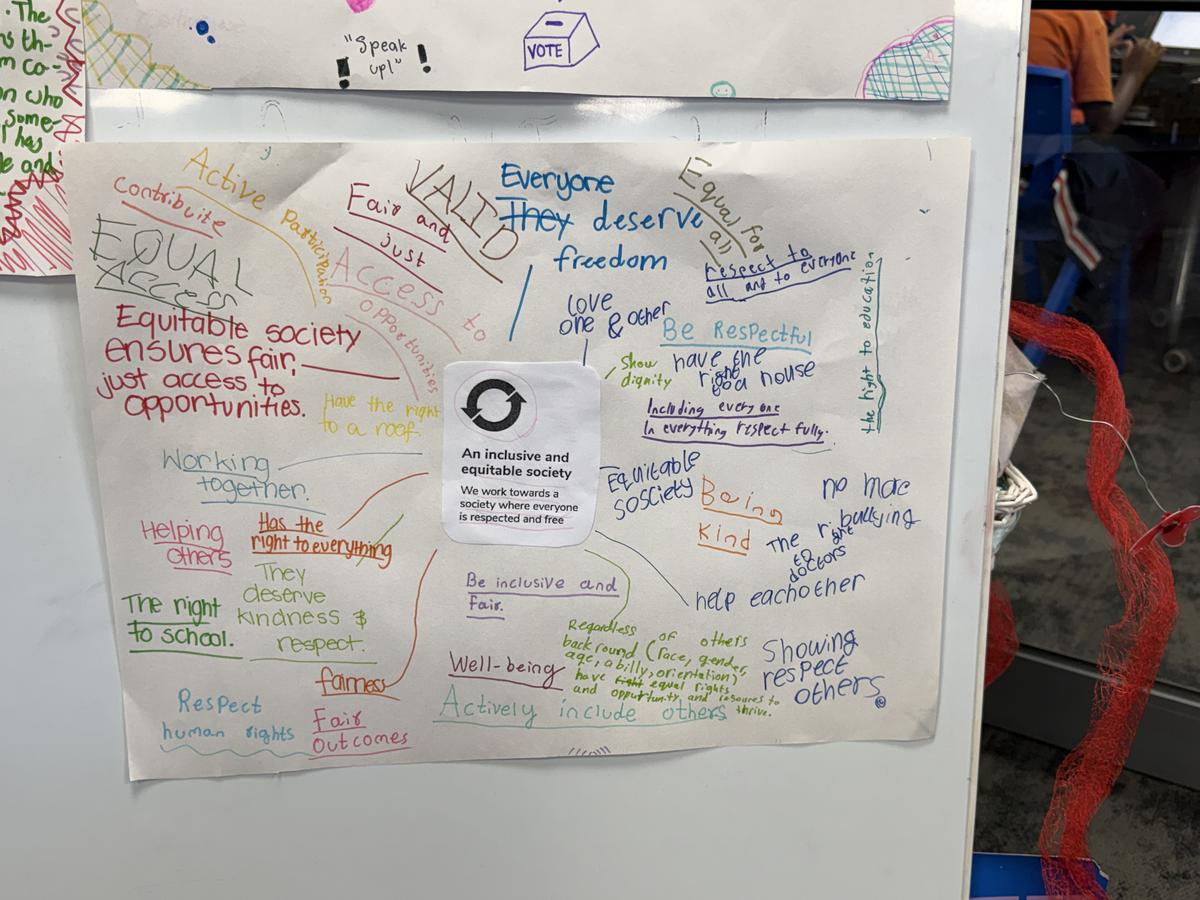 The
ns th-
m co-
on who
some-
l has
le and
"Speak
up!"
VOTE
Contribute
Active Participation
EQUAL
Access
Fair and
just
Access to
opportunities
VALID
Everyone
They deserve
freedom
Equal for
all
respect to
all and to everyone
the right to education
Equitable society
ensures fair,
just access to
opportunities.
Have the right
to a roof.
love
one & other
Be Respectful
Show
dignity
have the
right
to a house
Including every one
In everything respect fully.
An inclusive and
equitable society
We work towards a
society where everyone
is respected and free
Working
together.
Equitable
sosciety
Being
kind
no more
bullying
The right
to
doctors
help eachother
Helping
others
Has the
right to everything
They
deserve
kindness &
respect.
The right
to school.
Be inclusive and
fair.
Regardless of others
backround (race, gender,
age, abilly, orientation)
have right equal rights
and oppurtunity and resoures to
thrive.
Showing
respect
others
Well-being
fairness
Actively include others
Respect
human rights
Fair
outcomes